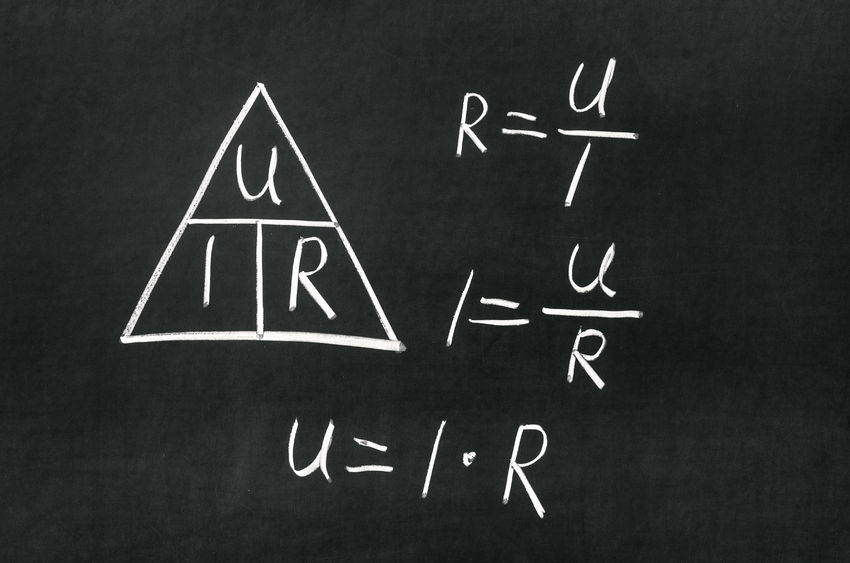 U
I R
R = U / I
I = U / R
U = I · R